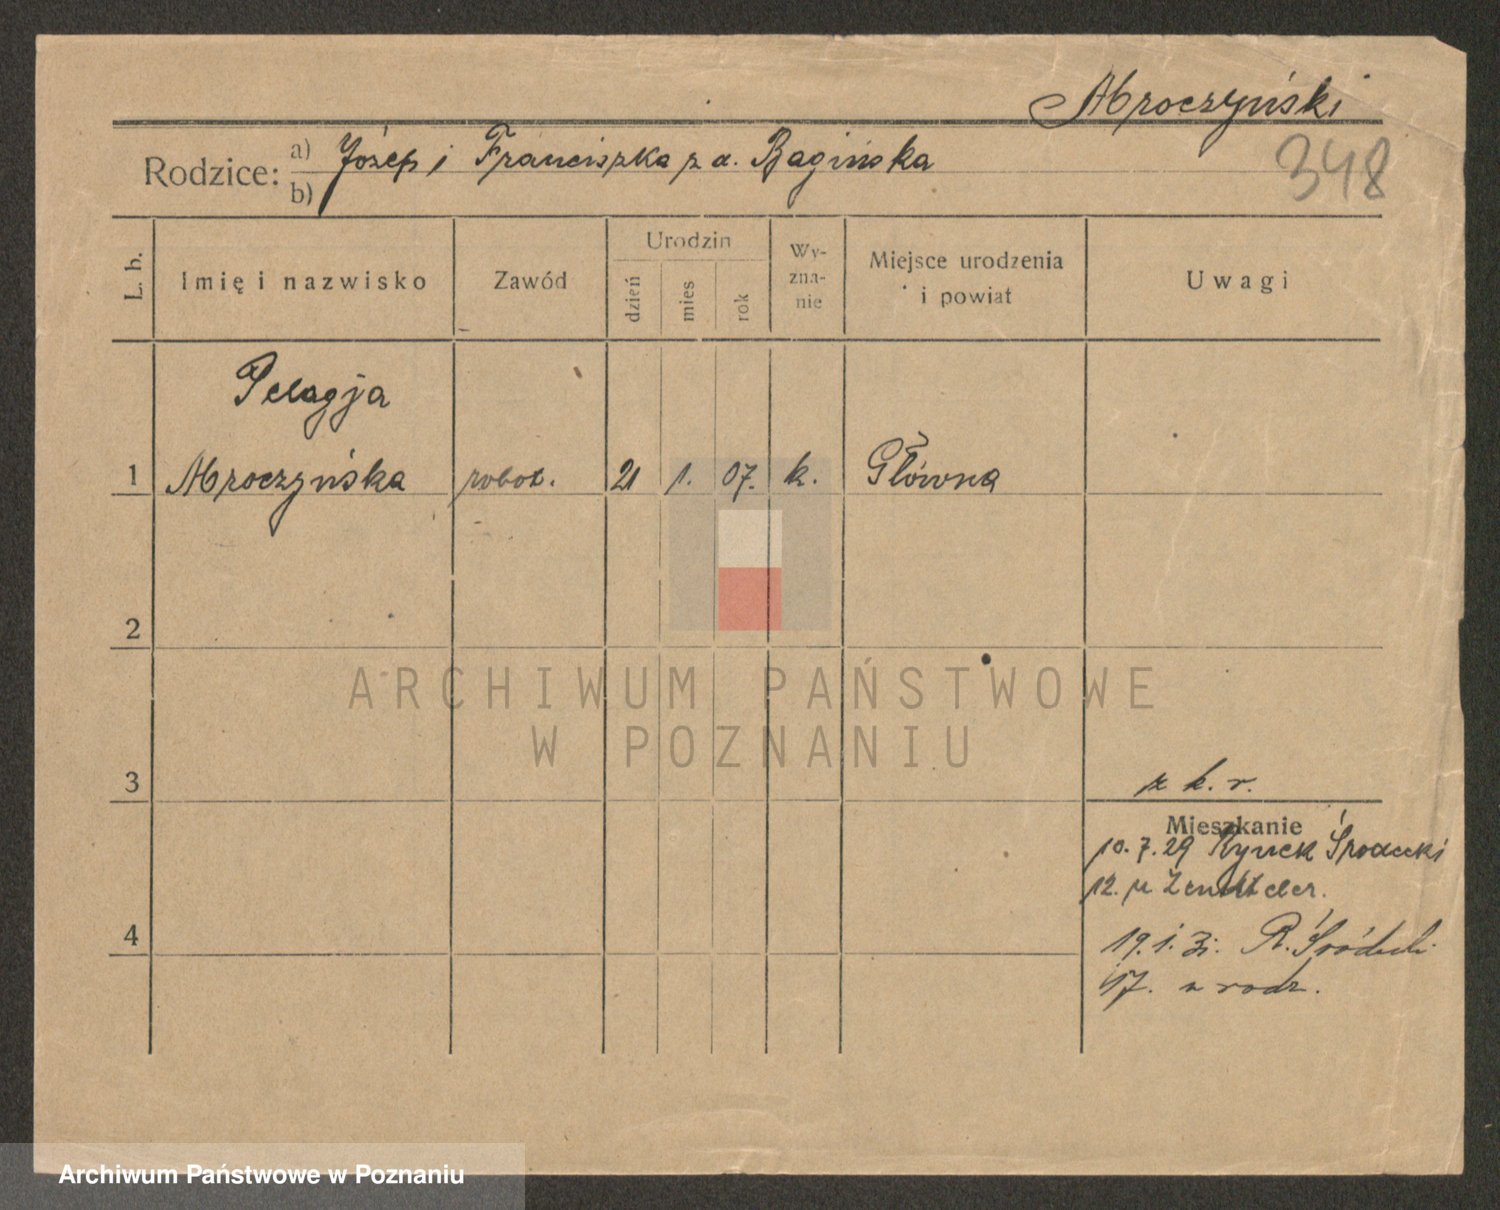 Mroczyński
348
Rodzice: a) Józef i Franciszka z d. Bagińska
b)
L. b.
Imię i nazwisko
Zawód
Urodzin
dzień
mies
rok
Wy-
zna-
nie
Miejsce urodzenia
i powiat
Uwagi
Pelagja
1 Mroczyńska robot. 21 1. 07. k. Główna
2
3
z k. r.
Mieszkanie
10.7.29 Rynek Środecki
12. u
4
19.1.31. R. Śródecki
17. u rodz.
ARCHIWUM PAŃSTWOWE
W POZNANIU
Archiwum Państwowe w Poznaniu